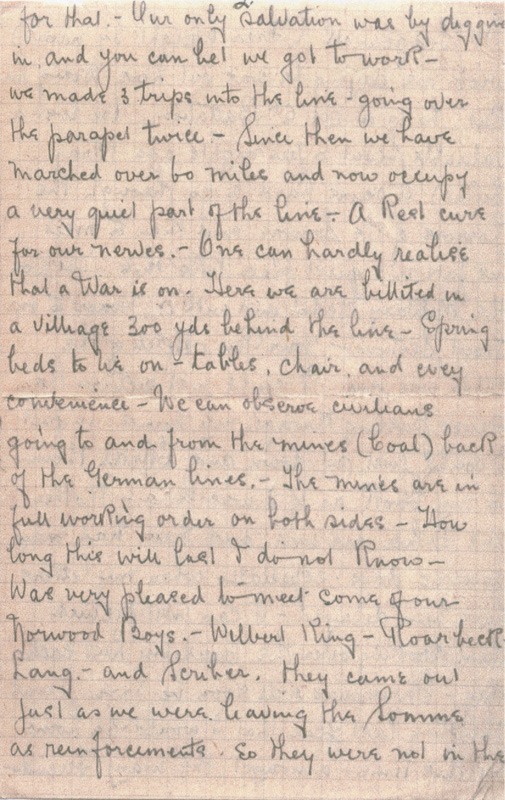 for that. - Our only Salvation was by diggin
in, and you can bet we got to work -
we made 3 trips into the line - going over
the parapet twice. - Since then we have
marched over 60 miles and now occupy
a very quiet part of the line. - A Rest cure
for our nerves. - One can hardly realise
that a War is on. Here we are billited in
a villiage 300 yds behind the line - Spring
beds to lie on - tables, chair, and evey
convenience - We can observe civilians
going to and from the mines (Coal) back
of the German lines. - The mines are in
full working order on both sides - How
long this will last I do not Know -
Was very pleased to meet some of our
Norwood Boys. - Wilbert King -
Lang. - and Scriber. They came out
just as we were leaving the Somme
as reinforcements so they were not in the